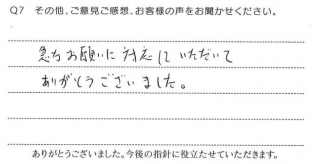 Q7 その他、ご意見ご感想、お客様の声をお聞かせください。
急なお願いに対応していただいて
ありがとうございました。
ありがとうございました。今後の指針に役立たせていただきます。